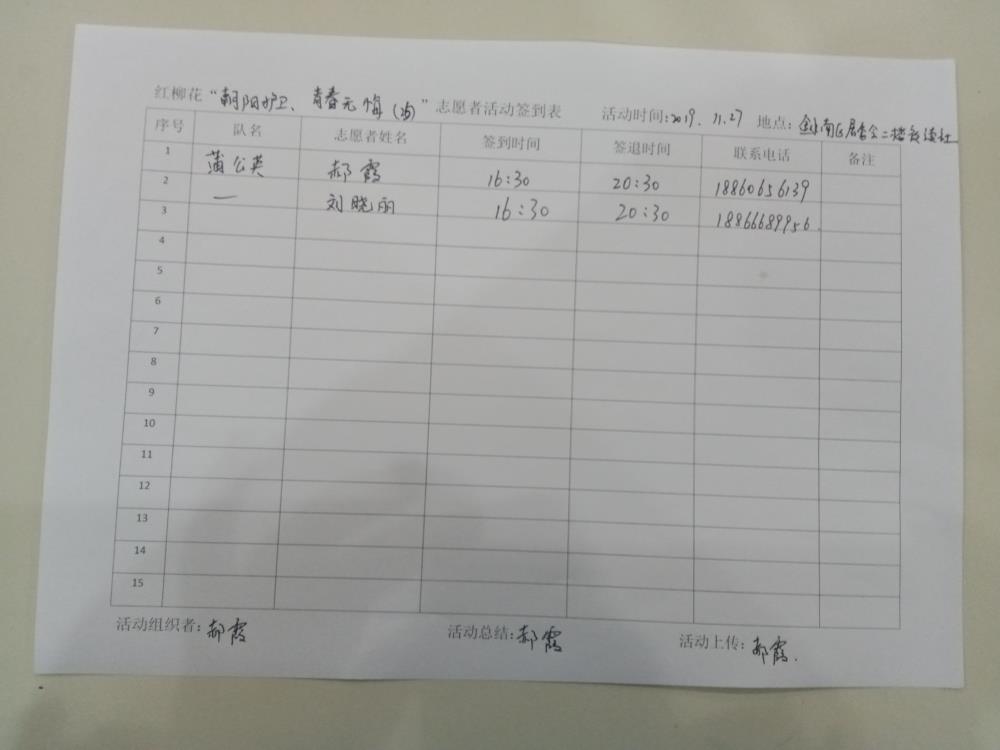 红柳花“朝阳护卫、青春无悔（35）”志愿者活动签到表 活动时间:2019.11.27 地点:金东南区居委会二楼
序号 队名 志愿者姓名 签到时间 签退时间 联系电话 备注
1 蒲公英 郝霞 16:30 20:30 18860656139
2 一 刘晓丽 16:30 20:30 18866689956.
3
4
5
6
7
8
9
10
11
12
13
14
15
活动组织者:郝霞 活动总结:郝霞 活动上传:郝霞.